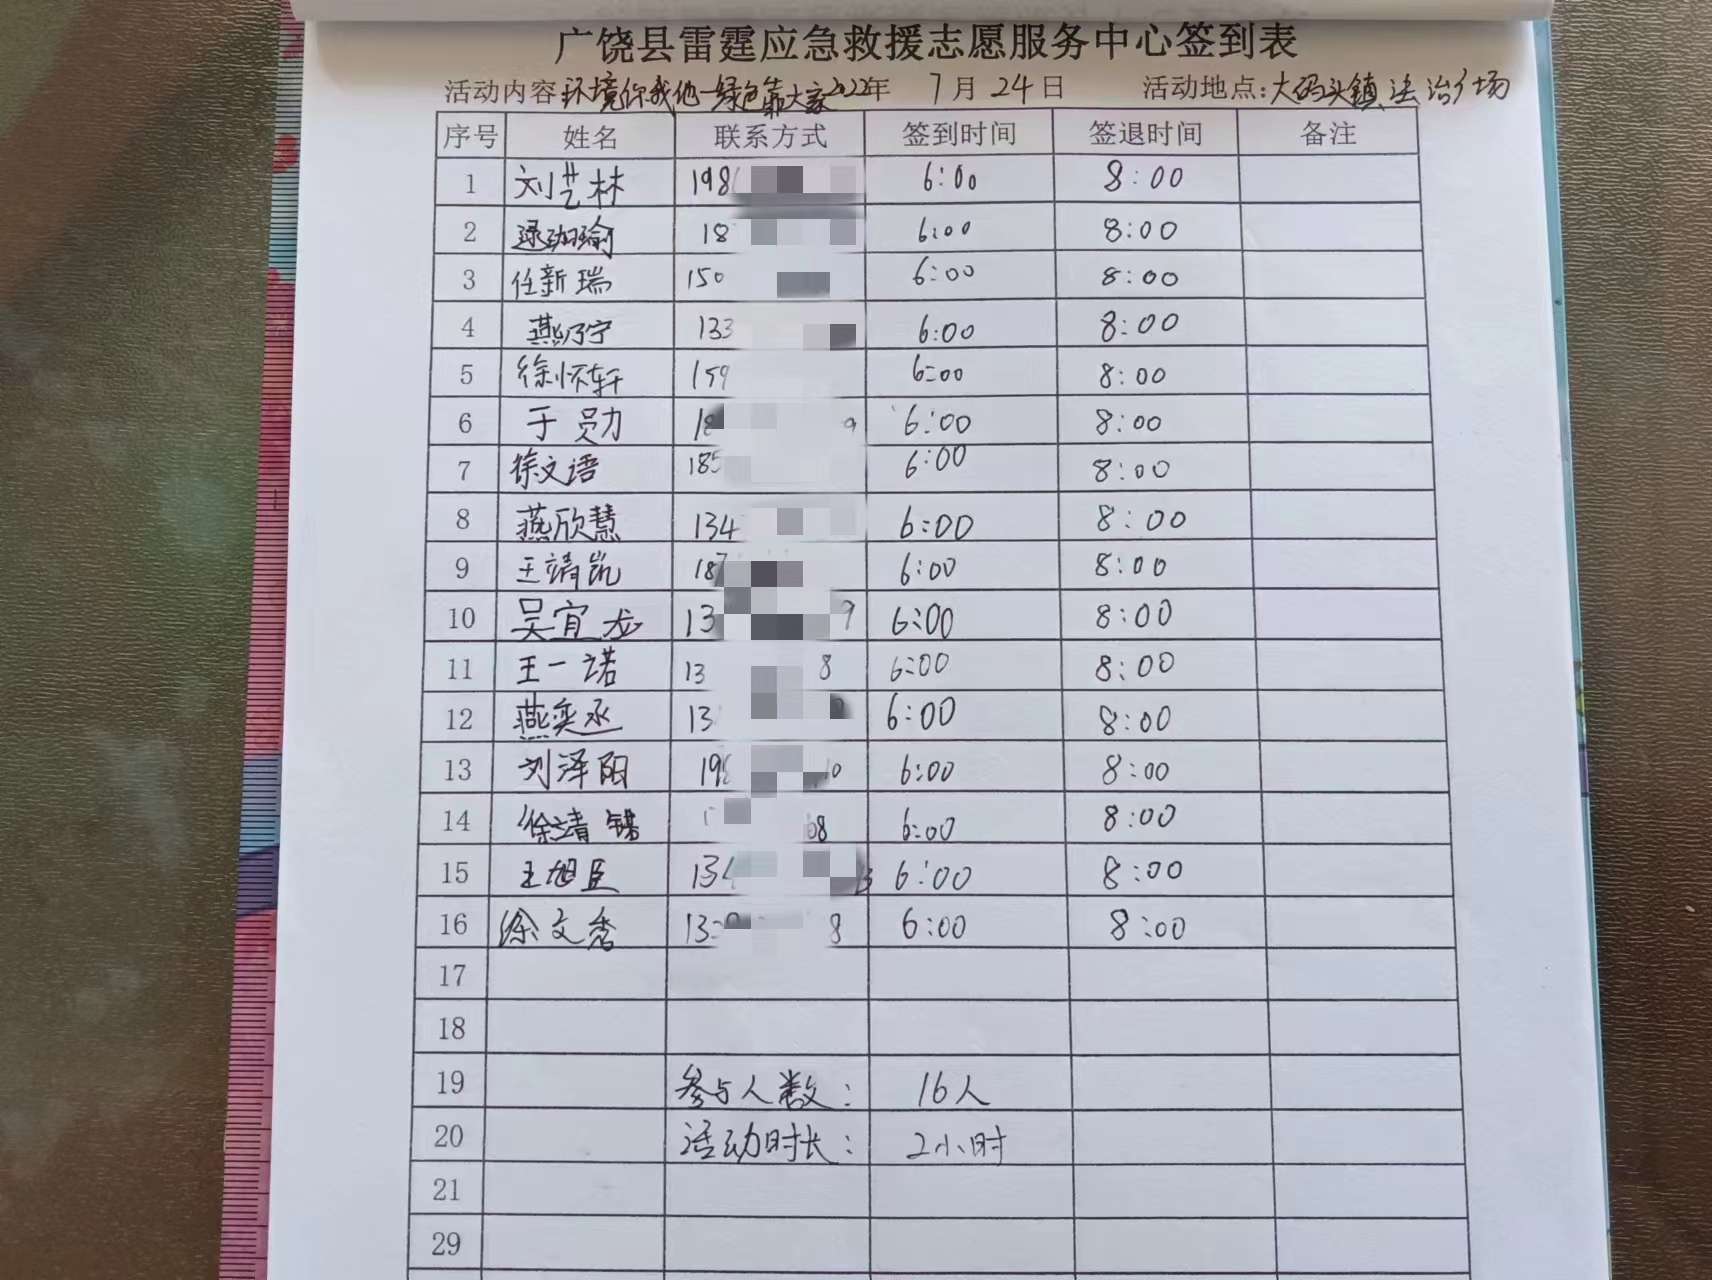 广饶县雷霆应急救援志愿服务中心签到表
活动内容:环境你我他一绿色靠大家2022年 7月24日 活动地点:大码头镇法治广场
序号 姓名 联系方式 签到时间 签退时间 备注
1 刘艺林 198 6:00 8:00
2 瑜 18 6:00 8:00
3 任新瑞 150 6:00 8:00
4 燕乃宁 133 6:00 8:00
5 徐怀轩 159 6:00 8:00
6 于勋 18 9 6:00 8:00
7 徐文语 185 6:00 8:00
8 燕欣慧 134 6:00 8:00
9 王靖凯 187 6:00 8:00
10 吴宜龙 13 9 6:00 8:00
11 王一诺 13 8 6:00 8:00
12 燕奕丞 13 6:00 8:00
13 刘泽阳 198 10 6:00 8:00
14 徐靖锴 1 08 6:00 8:00
15 王旭臣 134 6:00 8:00
16 徐文秀 13 8 6:00 8:00
17
18
19 参与人数: 16人
20 活动时长: 2小时
21
29